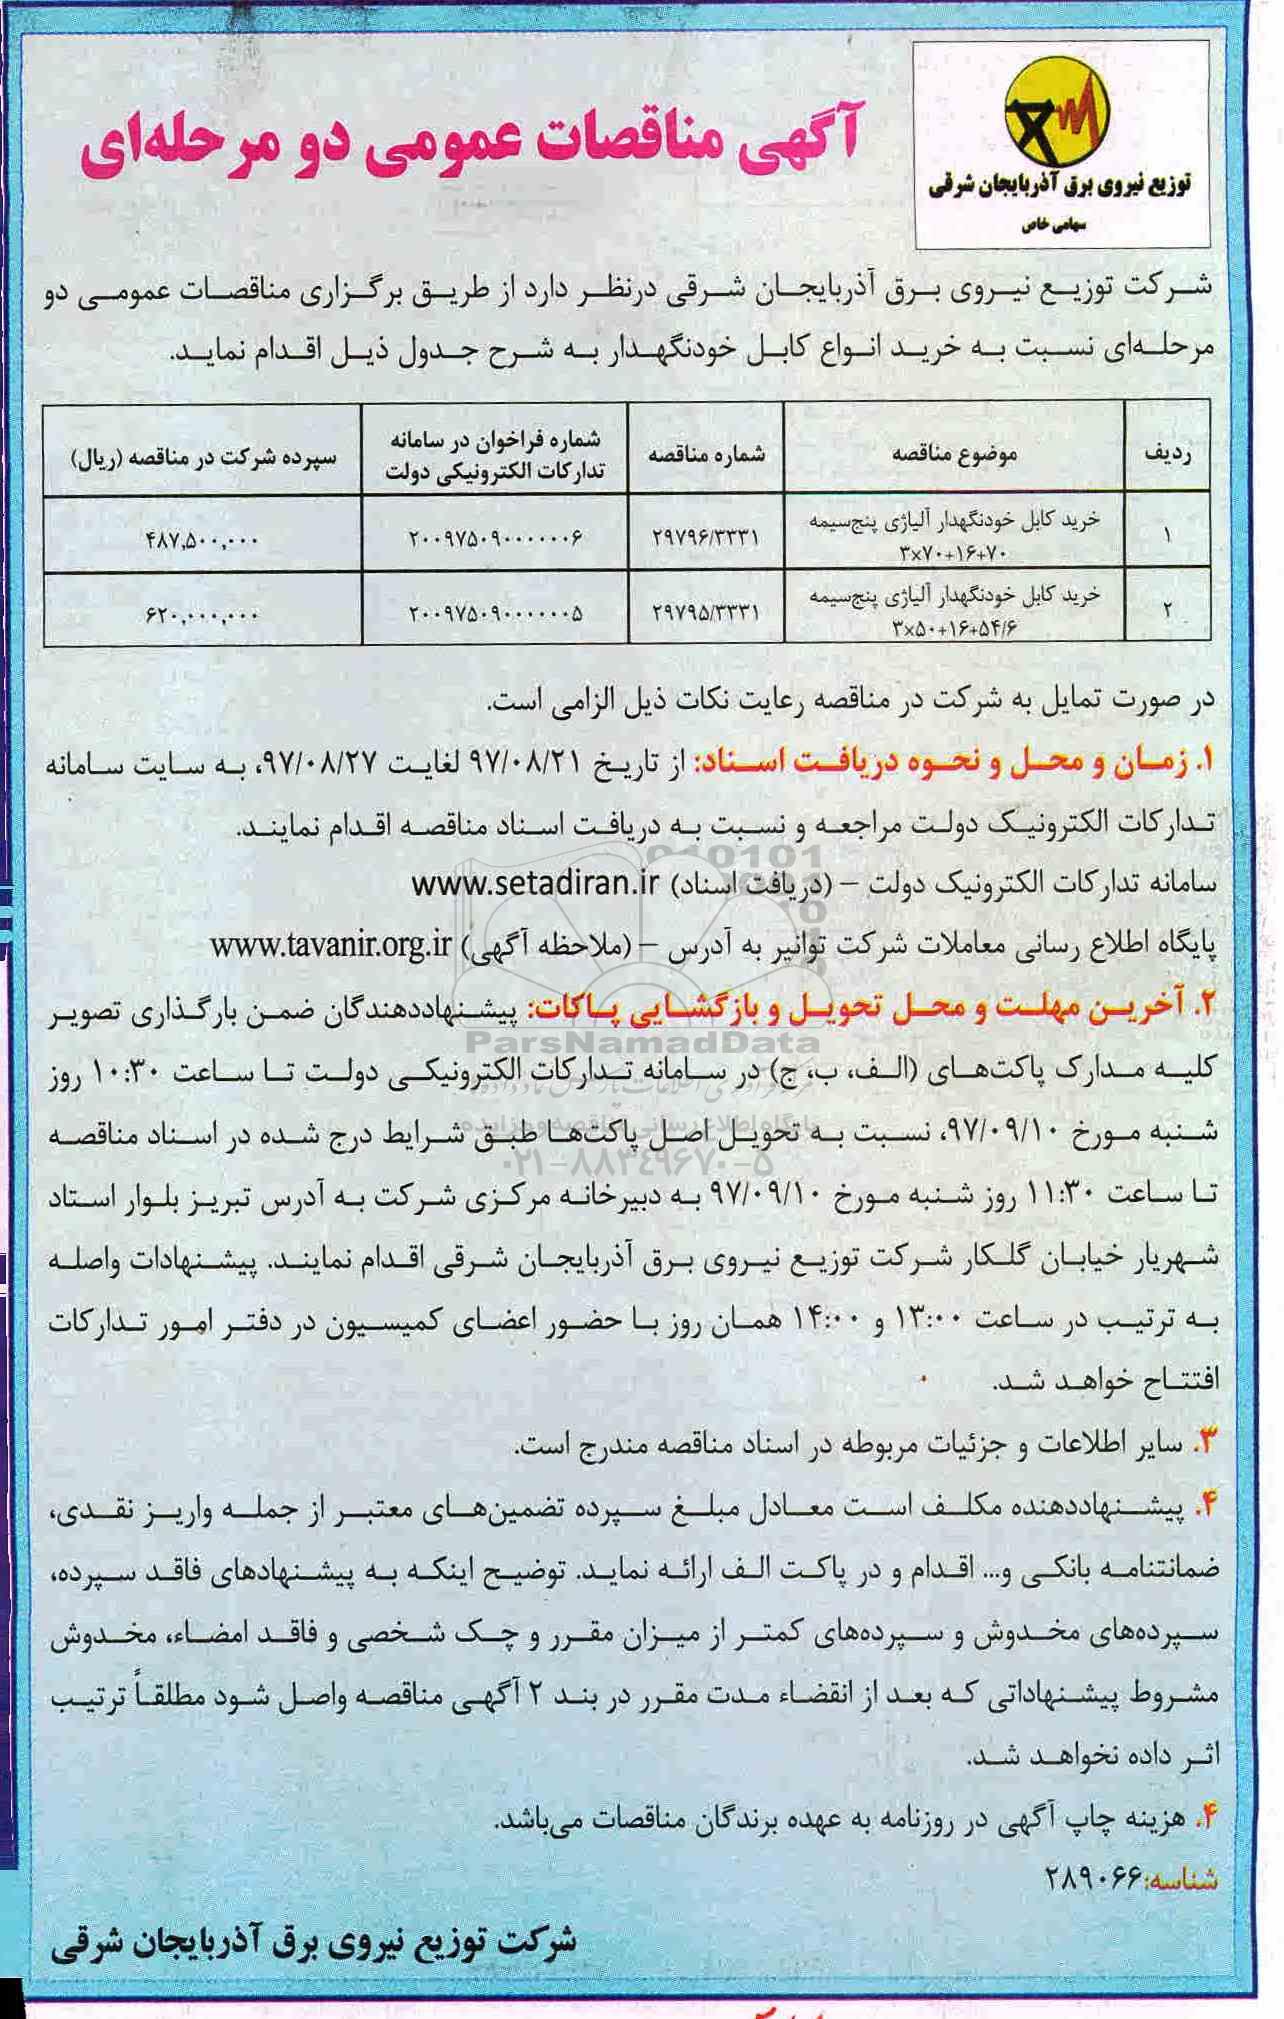 توزیع نیروی برق آذربایجان شرقی
سهامی خاص
آگهی مناقصات عمومی دو مرحله‌ای
شرکت توزیع نیروی برق آذربایجان شرقی درنظر دارد از طریق برگزاری مناقصات عمومی دو
مرحله‌ای نسبت به خرید انواع کابل خودنگهدار به شرح جدول ذیل اقدام نماید.
ردیف | موضوع مناقصه | شماره مناقصه | شماره فراخوان در سامانه تدارکات الکترونیکی دولت | سپرده شرکت در مناقصه (ریال)
۱ | خرید کابل خودنگهدار آلیاژی پنج‌سیمه ۳x۷۰+۱۶+۷۰ | ۲۹۷۹۶/۳۳۳۱ | ۲۰۰۹۷۵۰۹۰۰۰۰۰۰۶ | ۴۸۷,۵۰۰,۰۰۰
۲ | خرید کابل خودنگهدار آلیاژی پنج‌سیمه ۳x۵۰+۱۶+۵۴/۶ | ۲۹۷۹۵/۳۳۳۱ | ۲۰۰۹۷۵۰۹۰۰۰۰۰۰۵ | ۶۲۰,۰۰۰,۰۰۰
در صورت تمایل به شرکت در مناقصه رعایت نکات ذیل الزامی است.
۱. زمان و محل و نحوه دریافت اسناد: از تاریخ ۹۷/۰۸/۲۱ لغایت ۹۷/۰۸/۲۷، به سایت سامانه
تدارکات الکترونیک دولت مراجعه و نسبت به دریافت اسناد مناقصه اقدام نمایند.
سامانه تدارکات الکترونیک دولت – (دریافت اسناد) www.setadiran.ir
پایگاه اطلاع رسانی معاملات شرکت توانیر به آدرس – (ملاحظه آگهی) www.tavanir.org.ir
۲. آخرین مهلت و محل تحویل و بازگشایی پاکات: پیشنهاددهندگان ضمن بارگذاری تصویر
ParsNamadData
کلیه مدارک پاکت‌های (الف، ب، ج) در سامانه تدارکات الکترونیکی دولت تا ساعت ۱۰:۳۰ روز
پایگاه اطلاع رسانی مناقصه و مزایده
شنبه مورخ ۹۷/۰۹/۱۰، نسبت به تحویل اصل پاکت‌ها طبق شرایط درج شده در اسناد مناقصه
۰۲۱-۸۸۳۴۹۶۷۰-۵
تا ساعت ۱۱:۳۰ روز شنبه مورخ ۹۷/۰۹/۱۰ به دبیرخانه مرکزی شرکت به آدرس تبریز بلوار استاد
شهریار خیابان گلکار شرکت توزیع نیروی برق آذربایجان شرقی اقدام نمایند. پیشنهادات واصله
به ترتیب در ساعت ۱۳:۰۰ و ۱۴:۰۰ همان روز با حضور اعضای کمیسیون در دفتر امور تدارکات
افتتاح خواهد شد.
۳. سایر اطلاعات و جزئیات مربوطه در اسناد مناقصه مندرج است.
۴. پیشنهاددهنده مکلف است معادل مبلغ سپرده تضمین‌های معتبر از جمله واریز نقدی،
ضمانتنامه بانکی و... اقدام و در پاکت الف ارائه نماید. توضیح اینکه به پیشنهادهای فاقد سپرده،
سپرده‌های مخدوش و سپرده‌های کمتر از میزان مقرر و چک شخصی و فاقد امضاء، مخدوش
مشروط پیشنهاداتی که بعد از انقضاء مدت مقرر در بند ۲ آگهی مناقصه واصل شود مطلقاً ترتیب
اثر داده نخواهد شد.
۴. هزینه چاپ آگهی در روزنامه به عهده برندگان مناقصات می‌باشد.
شناسه: ۲۸۹۰۶۶
شرکت توزیع نیروی برق آذربایجان شرقی